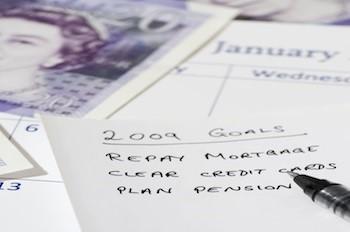 January
Wednesday
6
13
2009 GOALS
REPAY MORTGAGE
CLEAR CREDIT CARDS
PLAN PENSION